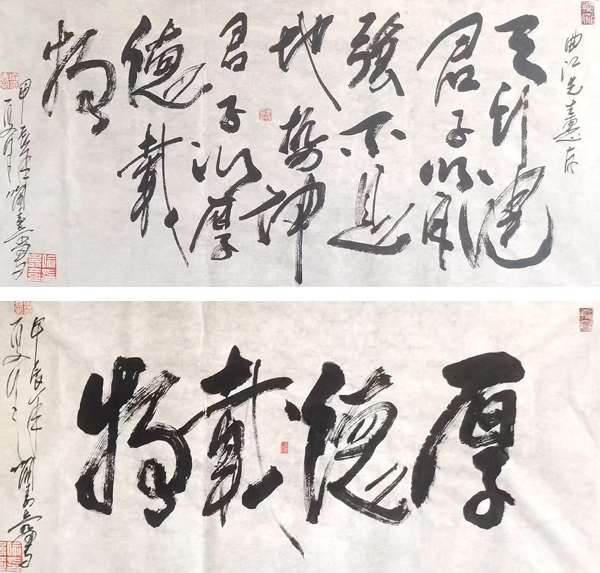 曲江先生惠存
天行健
君子以自
强不息
地势坤
君子以厚
德載
物
甲辰
夏月
厚德載物
甲辰年
夏